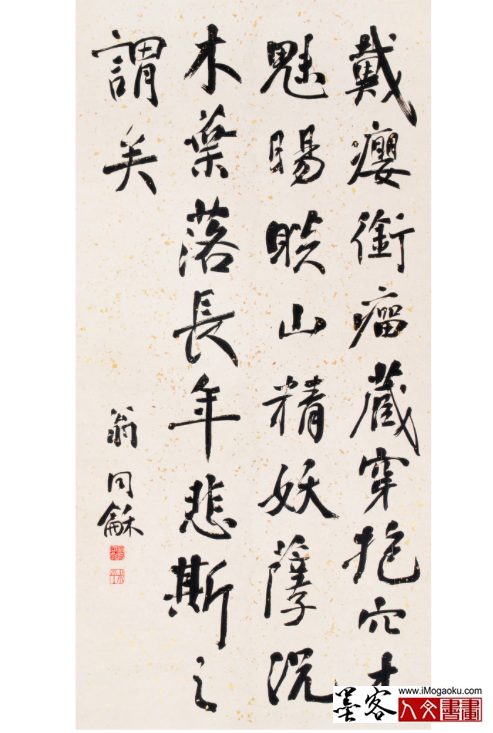 戴癭銜瘤藏穿抱穴木
魅睗睒山精妖孽況
木葉落長年悲斯之
謂矣
翁同龢
墨客
www.iMogaoku.com
人文書畫